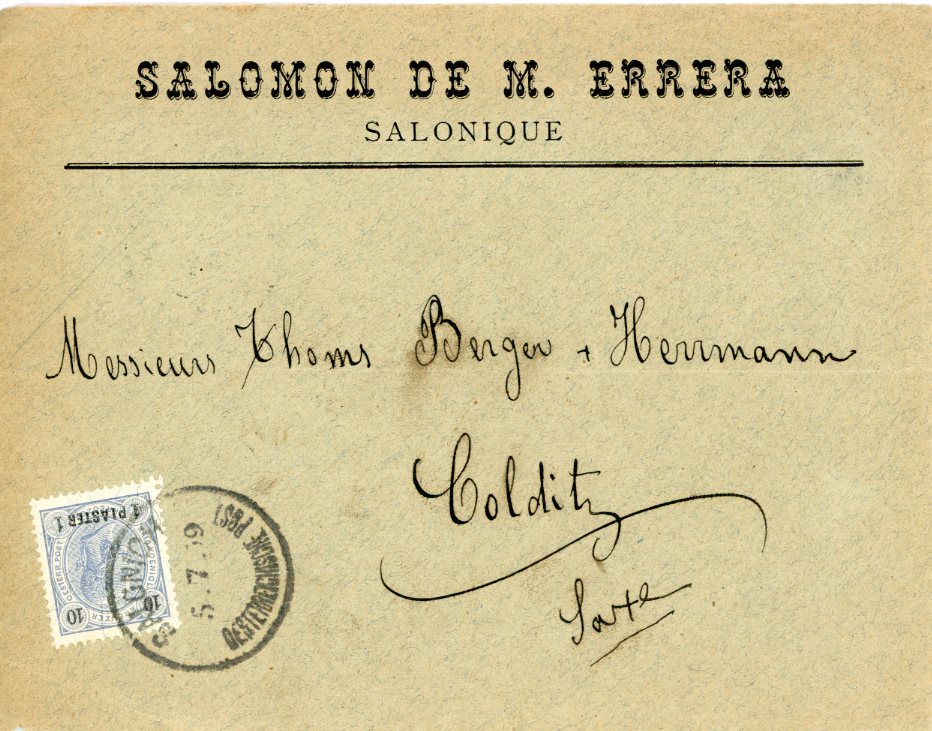 SALOMON DE M. ERRERA
SALONIQUE
Messieurs Thoms Berger + Herrmann
Colditz
Saxe
1 PIASTER 1
10 10
SALONICH
5.7.99
OESTERREICHISCHE POST